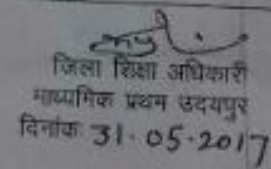 जिला शिक्षा अधिकारी
माध्यमिक प्रथम उदयपुर
दिनांक 31.05.2017